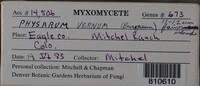 MYXOMYCETE
Acc # 14,506 Genus # 673
PHYSARUM VERNUM
Place: Eagle Co. Mitchel Ranch
Colo.
Date: 83 Collector: Mitchel
Personal collection: Mitchel & Chapman
Denver Botanic Gardens Herbarium of Fungi
810610